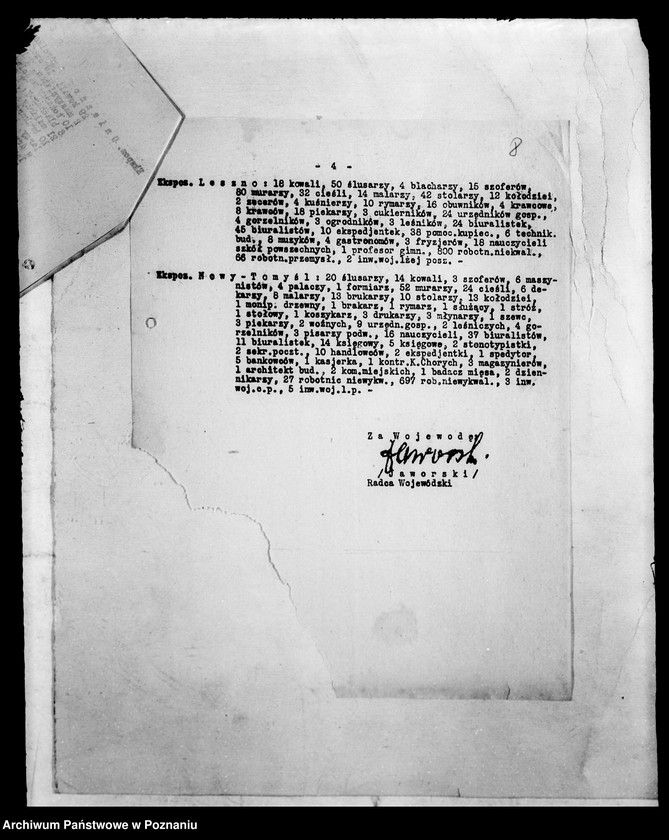 8
- 4 -
Ekspoz. L e s z n o : 18 kowali, 50 ślusarzy, 4 blacharzy, 15 szoferów,
80 murarzy, 32 cieśli, 14 malarzy, 42 stolarzy, 12 kołodziei,
2 zecerów, 4 kuśnierzy, 10 rymarzy, 16 obuwników, 4 krawcowe,
8 krawców, 18 piekarzy, 3 cukierników, 24 urzędników gosp.,
4 gorzelników, 3 ogrodników, 3 leśników, 24 biuralistek,
45 biuralistów, 10 ekspedjentek, 38 pomoc.kupiec., 6 technik.
bud., 8 muzyków, 4 gastronomów, 3 fryzjerów, 18 nauczycieli
szkół powszechnych, 1 profesor gimn., 800 robotn.niekwal.,
66 robotn.przemysł., 2 inw.woj.lżej posz. -
Ekspoz. N o w y - T o m y ś l : 20 ślusarzy, 14 kowali, 3 szoferów, 6 maszy-
nistów, 4 palaczy, 1 formiarz, 52 murarzy, 24 cieśli, 6 de-
karzy, 8 malarzy, 13 brukarzy, 10 stolarzy, 13 kołodziei,
1 monip. drzewny, 1 brakarz, 1 rymarz, 1 służący, 1 stróż,
1 stołowy, 1 koszykarz, 3 drukarzy, 3 młynarzy, 1 szewc,
3 piekarzy, 2 woźnych, 9 urzędn.gosp., 2 leśniczych, 4 go-
rzelników, 3 pisarzy podw., 16 nauczycieli, 37 biuralistów,
11 biuralistek, 14 księgowy, 5 księgowe, 2 stenotypistki,
2 sekr.poczt., 10 handlowców, 2 ekspedjentki, 1 spedytor,
5 bankowców, 1 kasjerka, 1 kontr.K.Chorych, 3 magazynierów,
1 architekt bud., 2 kom.miejskich, 1 badacz mięsa, 2 dzien-
nikarzy, 27 robotnic niewykw., 697 rob.niewykwal., 3 inw.
woj.c.p., 5 inw.woj.l.p. -
Z a W o j e w o d ę
/J a w o r s k i/
Radca Wojewódzki
Archiwum Państwowe w Poznaniu